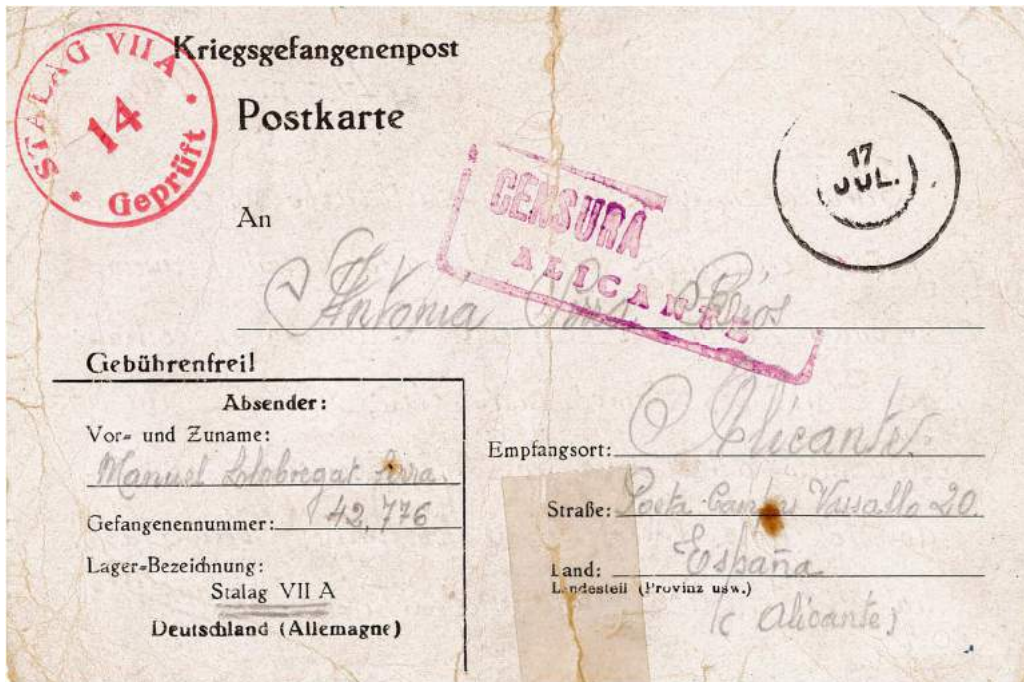 STALAG VII A
14
Geprüft
Kriegsgefangenenpost
Postkarte
17
JUL.
CENSURA
ALICANTE
An
Antonia
Gebührenfrei!
Absender:
Vor- und Zuname:
Manuel Llobregat
Gefangenennummer: 42,776
Lager-Bezeichnung:
Stalag VII A
Deutschland (Allemagne)
Empfangsort: Alicante
Straße: Poeta Vassallo 20.
Land: España
Landesteil (Provinz usw.)
(Alicante)